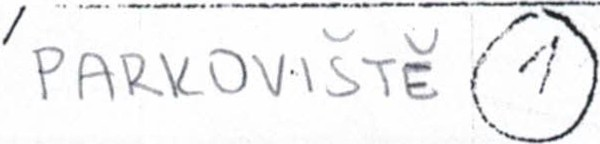 PARKOVIŠTĚ 1